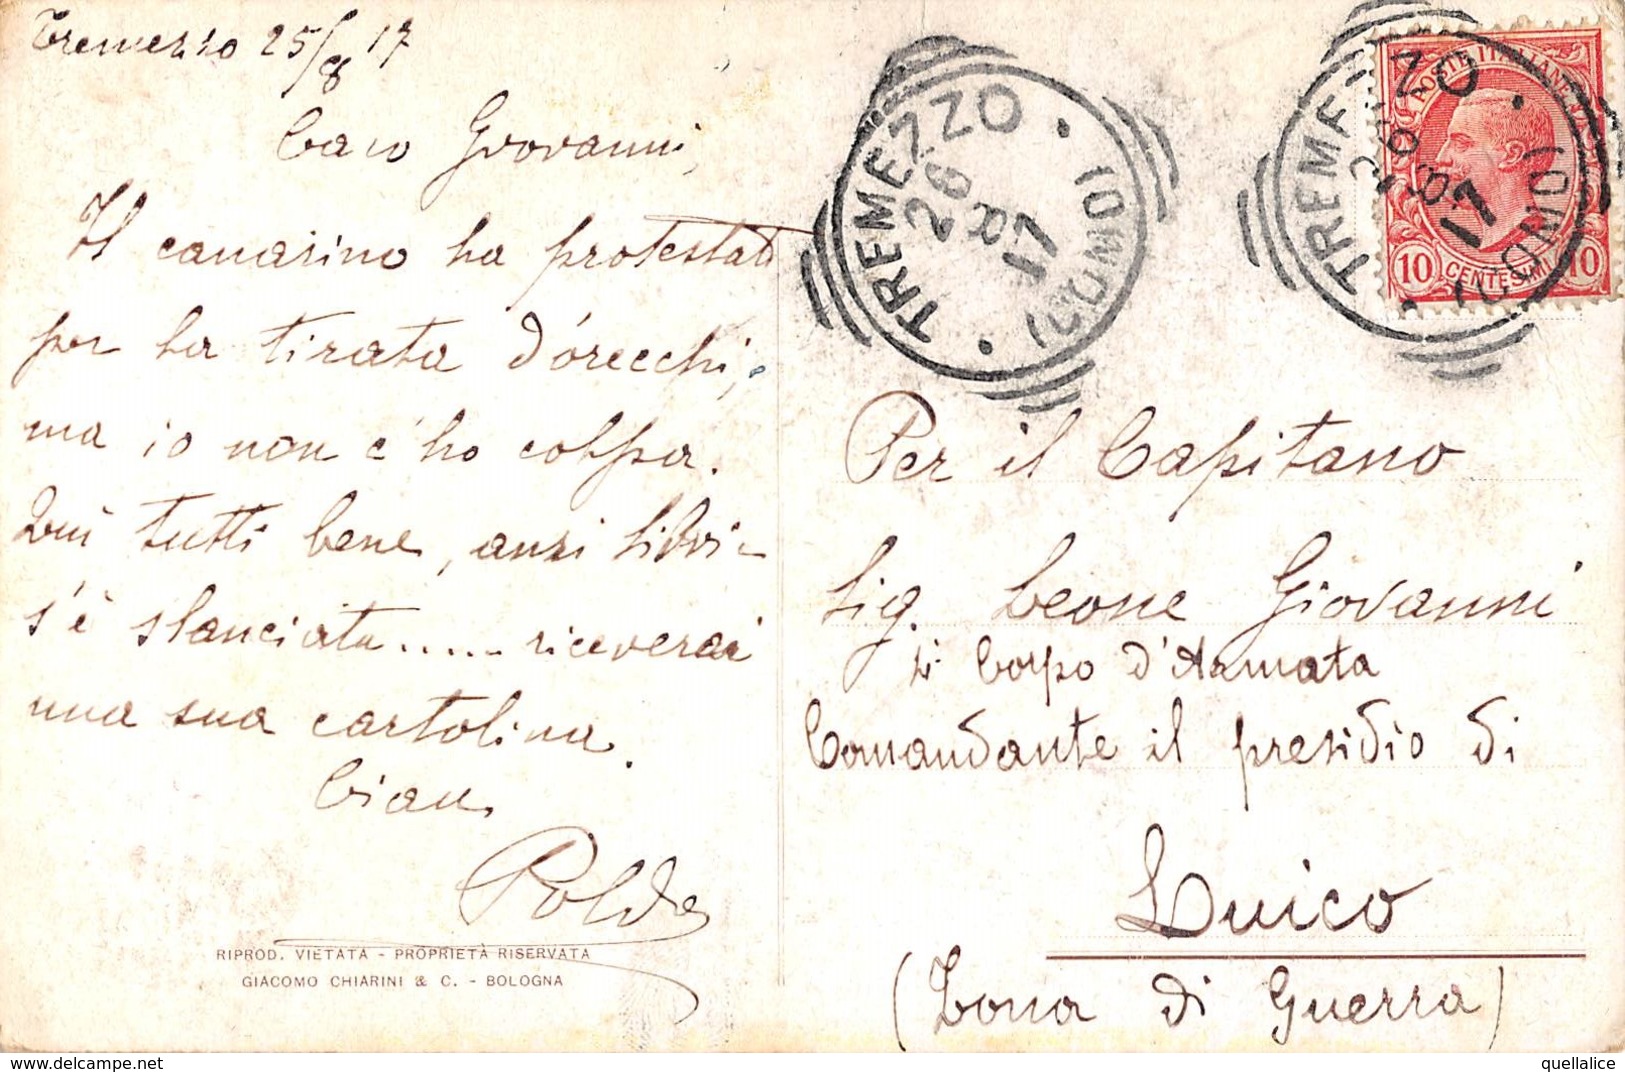 Tremezzo 25/8 17
Caro Giovanni,
Il canarino ha protestato
per la tirata d'orecchi,
ma io non c'ho colpa.
Quì tutti bene, anzi
s'è slanciata...... riceverai
una sua cartolina.
Ciau,
Polda
RIPROD. VIETATA - PROPRIETÀ RISERVATA
GIACOMO CHIARINI & C. - BOLOGNA
TREMEZZO
26 8 17
(COMO)
TREMEZZO
26 8 17
(COMO)
POSTE ITALIANE
10 CENTESIMI 10
Per il Capitano
Sig. Leone Giovanni
Corpo d'Armata
Comandante il presidio di
Luico
(Zona di Guerra)
www.delcampe.net
quellalice